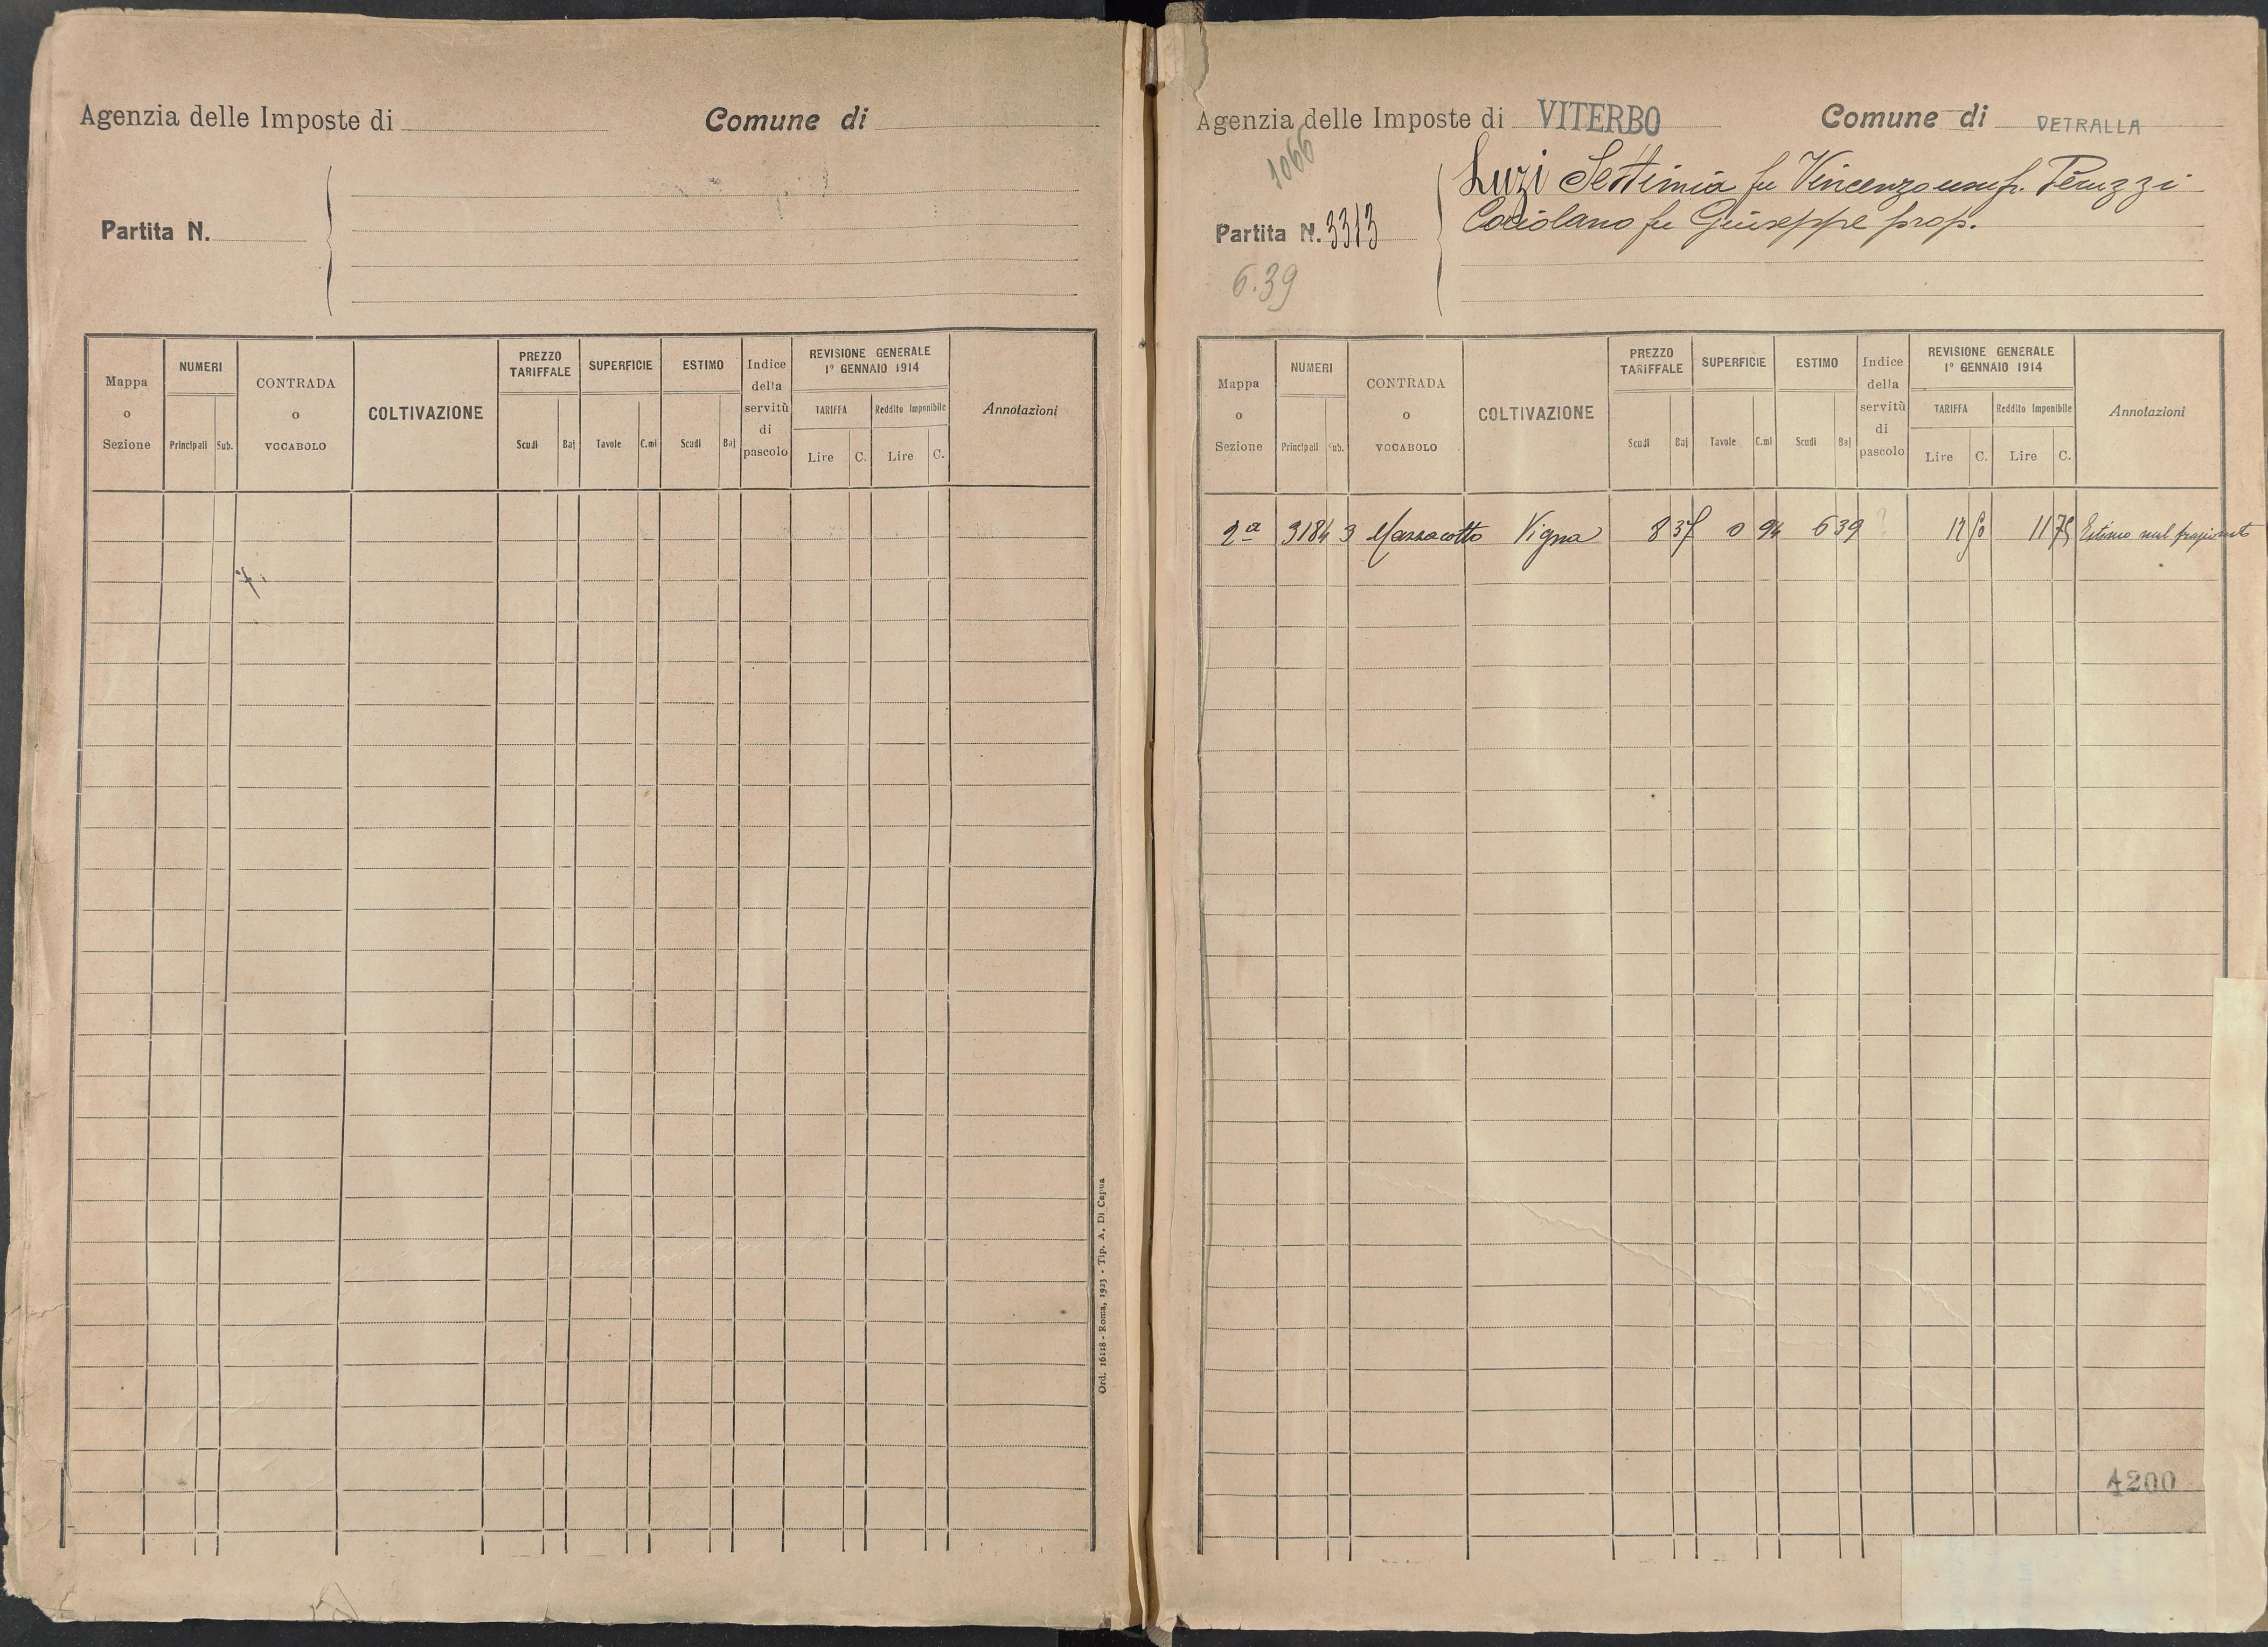 Agenzia delle Imposte di
Comune di
Partita N.
Mappa o Sezione
NUMERI
Principali Sub.
CONTRADA o VOCABOLO
COLTIVAZIONE
PREZZO TARIFFALE
Scudi Baj
SUPERFICIE
Tavole C.mi
ESTIMO
Scudi Baj
Indice della servitù di pascolo
REVISIONE GENERALE
1º GENNAIO 1914
TARIFFA
Lire C.
Reddito Imponibile
Lire C.
Annotazioni
Ord. 16118 - Roma, 1923 - Tip. A. Di Capua
Agenzia delle Imposte di VITERBO
Comune di VETRALLA
1066
Luzi Settimia fu Vincenzo usuf. Peruzzi
fu Giuseppe prop.
Partita N. 3313
6.39
Mappa o Sezione
NUMERI
Principali Sub.
CONTRADA o VOCABOLO
COLTIVAZIONE
PREZZO TARIFFALE
Scudi Baj
SUPERFICIE
Tavole C.mi
ESTIMO
Scudi Baj
Indice della servitù di pascolo
REVISIONE GENERALE
1º GENNAIO 1914
TARIFFA
Lire C.
Reddito Imponibile
Lire C.
Annotazioni
2ª 3184 3 Mazzacotto Vigna 8 37 0 94 6 39 12 50 11 75 Estimo nel
4200